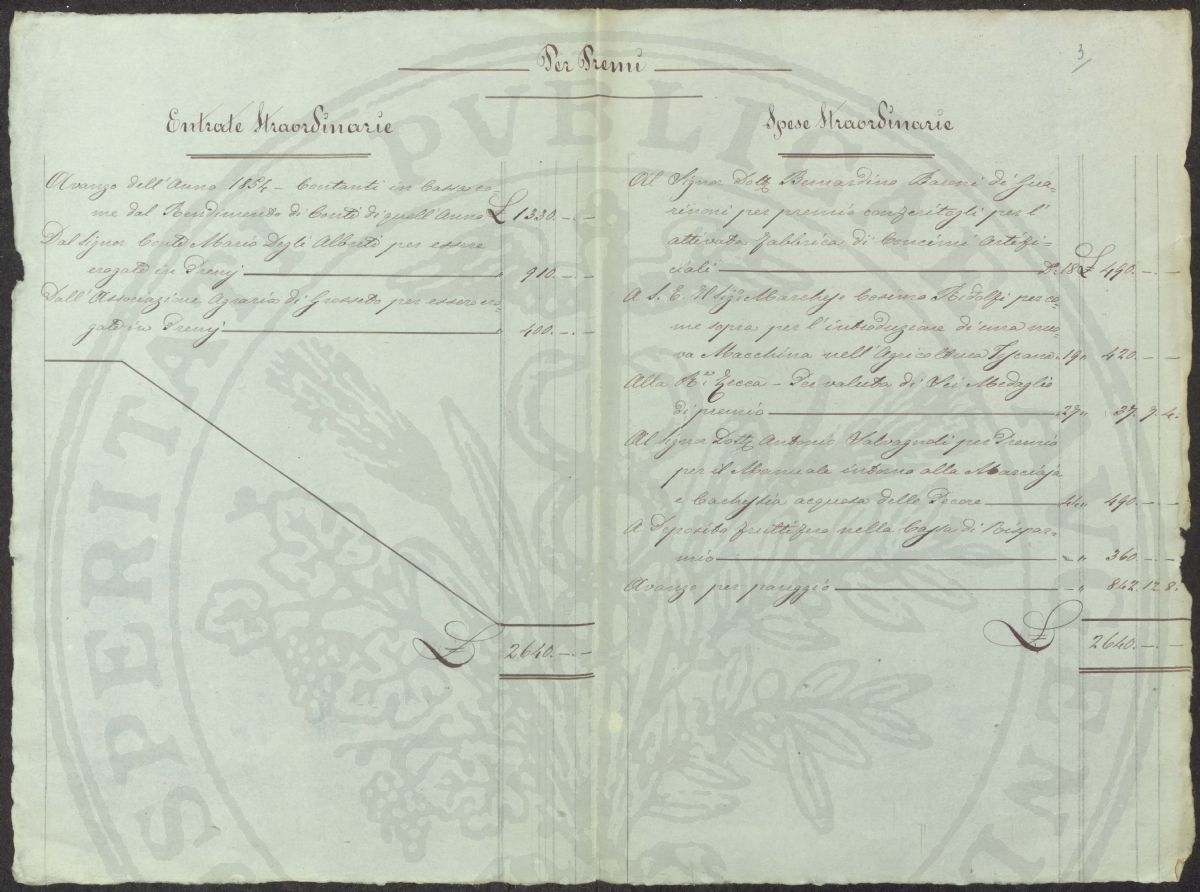 3
Per Premi
Entrate Straordinarie
Avanzo dell'Anno 1854 - Contanti in Cassa co-
me dal Rendimento di Conti di quell'Anno £ 1330. - -
Dal Signor Conte Mario Degli Alberti per essere
erogate in Premj " 910. - -
Dall'Associazione Agraria di Grosseto per essere ero-
gate in Premj " 400. - -
£ 2640. - -
Spese Straordinarie
Al Signor Dott. Bernardino Baroni di Gua-
rinoni per premio conferitogli per l'
attivata fabbrica di Concimi Artifi-
ciali 18 £ 490. - -
A S. E. Il Sigr. Marchese Cosimo Ridolfi per co-
me sopra per l'introduzione di una nuo-
va Macchina nell'Agricoltura Toscana 19 " 420. - -
Alla R. Zecca - Per valuta di Sei Medaglie
di premio 27 " 37. 7. 4.
Al Signor Dott. Antonio Salvagnoli per Premio
per il Manuale intorno alla Marciaja
e Cachessia acquosa delle Pecore " 490. - -
A Deposito fruttifero nella Cassa di Rispar-
mio - " 360. - -
Avanzo per pareggio - " 842. 12. 8.
£ 2640. - -
SPERITATI PVBLICAE AVGENDAE